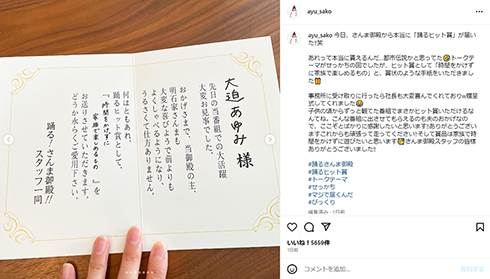 大迫あゆみ 様
先日の当番組での大活躍
大変お見事でした。
おかげさまで、当御殿の主、
明石家さんまも
大変な喜びようで前よりも
しゃべるようになり、
うるさくて仕方ありません。
何はともあれ、
踊るヒット賞として、
「時間をかけずに
家族で楽しめるもの」を
お送りさせていただきます。
どうか永らくご愛用下さい。
踊る！さんま御殿!!
スタッフ一同
ayu_sako
ayu_sako 今日、さんま御殿から本当に「踊るヒット賞」が届いた!!笑
あれって本当に貰えるんだ…都市伝説かと思ってた
トークテーマがせっかちの回でしたが、ヒット賞として「時間をかけずに家族で楽しめるもの」と、賞状のような手紙をいただきました
事務所に受け取りに行ったら社長も大変喜んでくれており
呈式してくれました
子供の頃からずっと観てた番組でまさかヒット賞いただけるなんてね。こんな番組に出させてもらえるのも夫のおかげなので、ここぞとばかりに感謝したいと思います
ありがとうございます
これからも頑張って出てくださいそして賞品は家族で時間をかけずに遊びたいと思います
さんま御殿スタッフの皆様ありがとうございました!!
#踊るさんま御殿
#踊るヒット賞
#トークテーマ
#せっかち
#マジで届くんだ
#びっくり
編集済み・1日前
いいね！5659件
1日前
コメントを追加...
投稿する